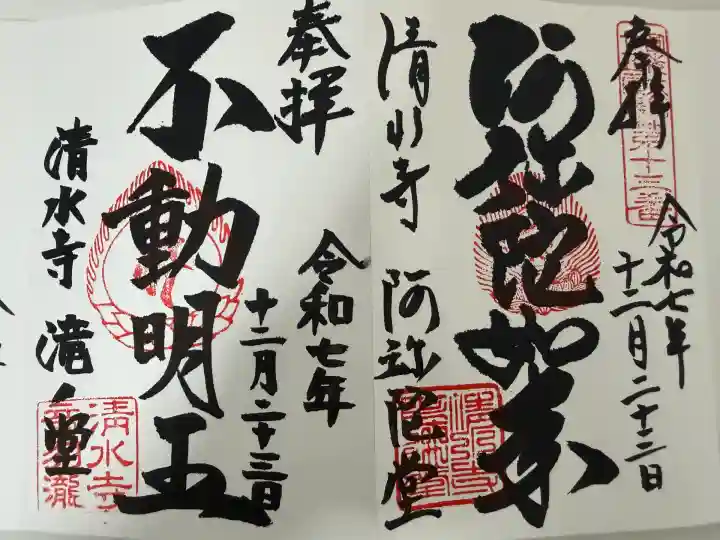 奉拝
令和七年
十二月二十三日
阿弥陀如来
清水寺 阿弥陀堂
奉拝
令和七年
十二月二十三日
不動明王
清水寺 滝ノ堂
清水寺